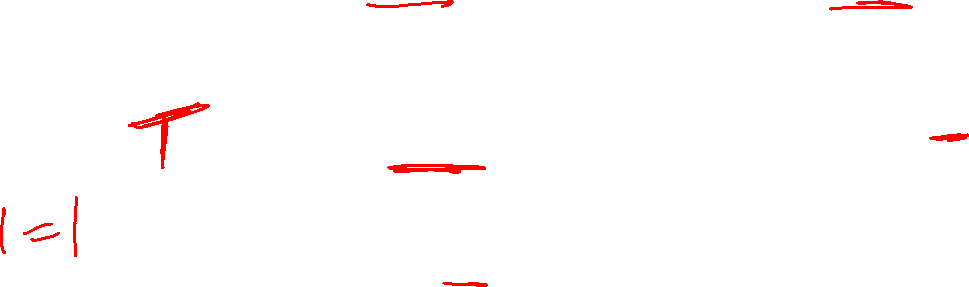 T
1=1